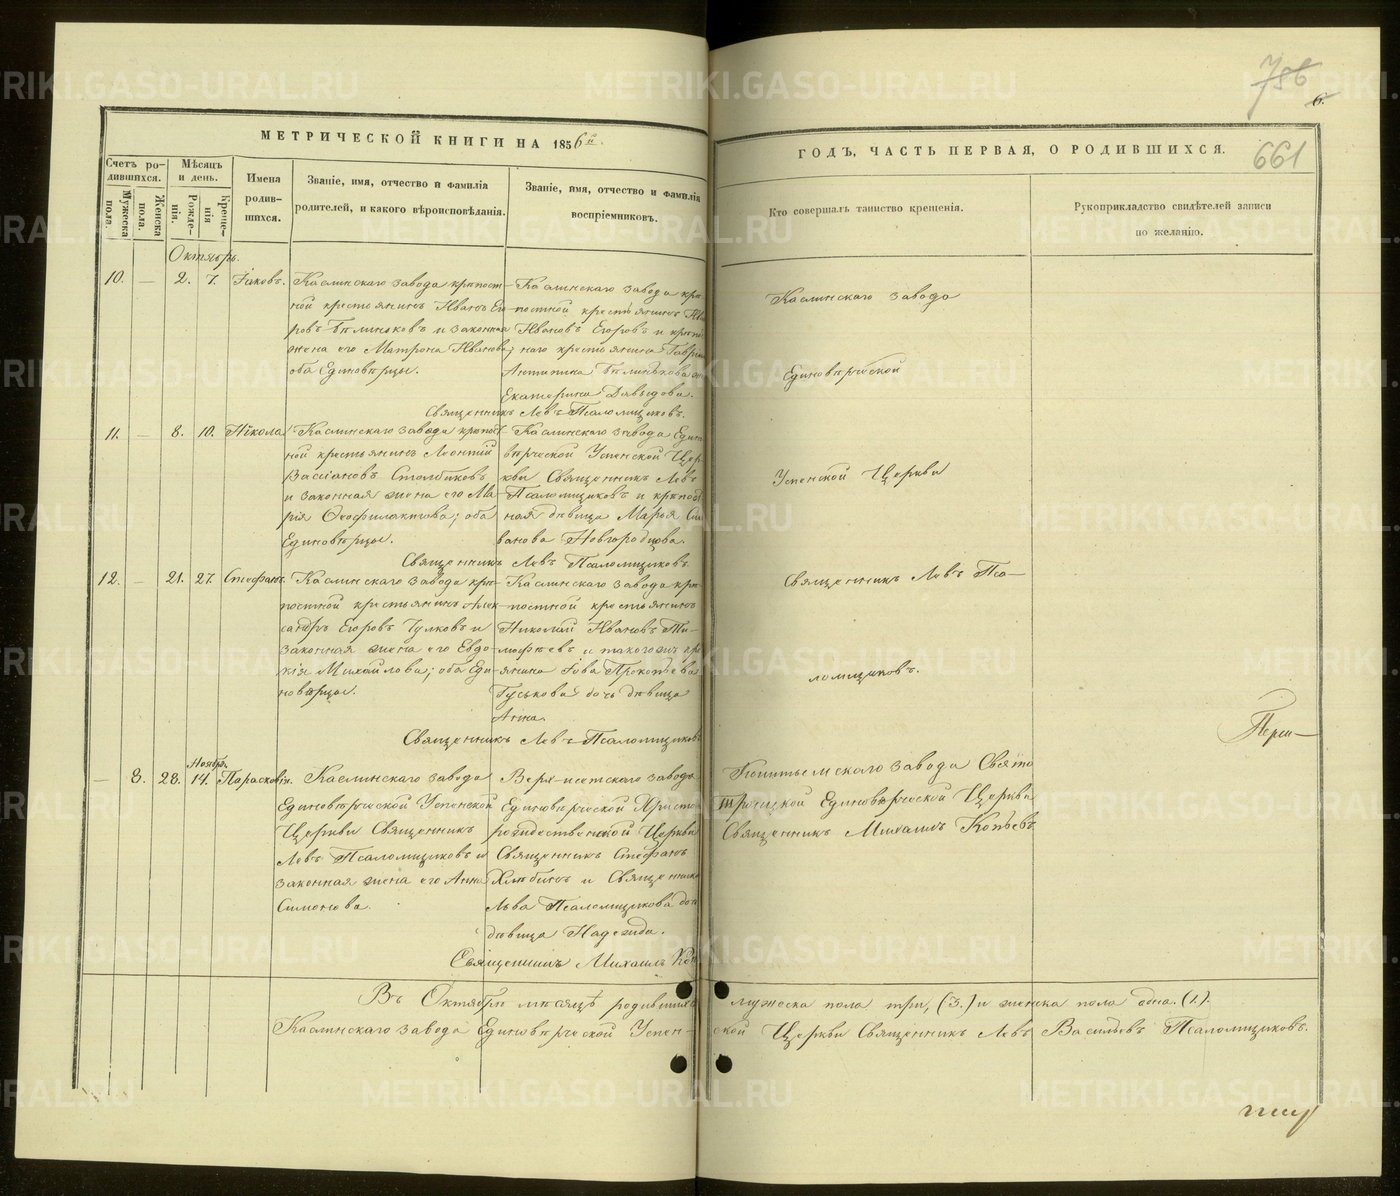 786
6.
МЕТРИЧЕСКОЙ КНИГИ НА 1856й.
ГОДЪ, ЧАСТЬ ПЕРВАЯ, О РОДИВШИХСЯ.
661
Счетъ ро-
дившихся.
Мужеска
пола.
Женска
пола.
Мѣсяцъ
и день.
Рожде-
нія.
Креще-
нія
Имена
родив-
шихся.
Званіе, имя, отчество и фамилія
родителей, и какого вѣроисповѣданія.
Званіе, имя, отчество и фамилія
воспріемниковъ.
Кто совершалъ таинство крещенія.
Рукоприкладство свидѣтелей записи
по желанію.
Октябрь.
10. — 2. 7. Іаковъ.
Каслинскаго завода крѣпост-
ной крестьянинъ Иванъ Его-
ровъ Бѣлиньковъ и законная
жена его Матрона Иванова;
оба Единовѣрцы.
Каслинскаго завода крѣ-
постной крестьянинъ
Ивановъ Егоровъ и крѣпо
наго крестьянина
Антипина Бѣлинькова
Екатерина Давыдова.
Священникъ Левъ Псаломщиковъ.
Каслинскаго завода
Единовѣрческой
Успенской Церкви
Священникъ Левъ Пса-
ломщиковъ.
11. — 8. 10. Нікола
Каслинскаго завода крѣпост-
ной крестьянинъ Леонтій
Вассіановъ Столбиковъ
и законная жена его Ма-
рія Ѳеофилактова; оба
Единовѣрцы.
Каслинскаго завода Едино
вѣрческой Успенской Цер-
кви Священникъ Левъ
Псаломщиковъ и крѣпост
ная дѣвица Марья Си
ванова Новгородцова.
Священникъ Левъ Псаломщиковъ.
12. — 21. 27. Стефанъ.
Каслинскаго завода крѣ-
постной крестьянинъ Алек-
сандръ Егоровъ Чулковъ и
законная жена его Евдо-
кія Михайлова; оба Еди-
новѣрцы.
Каслинскаго завода крѣ-
постной крестьянинъ
Николай Ивановъ Ти-
мофѣевъ и такогожъ кре
янина Іова Прокопьева
Гуськова дочь дѣвица
Анна.
Священникъ Левъ Псаломщиковъ
— 8. 28. Ноябрь. 14. Параскевія.
Каслинскаго завода
Единовѣрческой Успенской
Церкви Священникъ
Левъ Псаломщиковъ и
законная жена его Анна
Симонова.
Верх-исетскаго завода
Единовѣрческой Христо
рождественской Церкви
Священникъ Стефанъ
Хлѣбинъ и Священника
Льва Псаломщикова дочь
дѣвица Надежда.
Священникъ Михаилъ Коп
завода Свято
Троицкой Единовѣрческой Церкви
Священникъ Михаилъ Копьевъ
Въ Октябрѣ мѣсяцѣ родившихся мужеска пола три, (3.) и женска пола одна. (1.).
Каслинскаго завода Единовѣрческой Успен-ской Церкви Священникъ Левъ Васильевъ Псаломщиковъ.